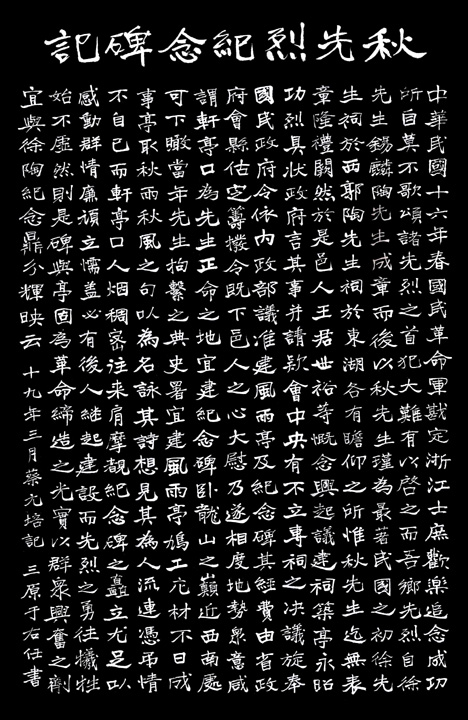 秋先烈紀念碑記
中華民國十六年春國民革命軍戡定浙江士庶歡樂追念成功
所自莫不歌頌諸先烈之首犯大難有以啓之而吾鄉先烈自徐
先生錫麟陶先生成章而後以秋先生瑾為最著民國之初徐先
生祠於西郭陶先生祠於東湖各有瞻仰之所惟秋先生迄無表
章隆禮闕然於是邑人王君世裕等慨念興起議建祠築亭永昭
功烈具狀政府言其事并請欵會中央有不立專祠之決議旋奉
國民政府令依內政部議准建風雨亭及紀念碑其經費由省政
府會縣估定籌撥令既下邑人之心大慰乃遂相度地勢眾意咸
謂軒亭口為先生正命之地宜建紀念碑卧龍山之巔近西南處
可下瞰當年先生拘繫之典史署宜建風雨亭鳩工庀材不日成
事亭取秋雨秋風之句以為名詠其詩想見其為人流連憑弔情
不自已而軒亭口人烟稠密往來肩摩覩紀念碑之矗立尤足以
感動群情廉頑立懦蓋必有後人繼起建設而先烈之勇往犧牲
始不虛然則是碑與亭固為革命締造之光實以群眾興奮之劑
宜與徐陶紀念鼎分輝映云 十九年三月蔡元培記 三原于右任書